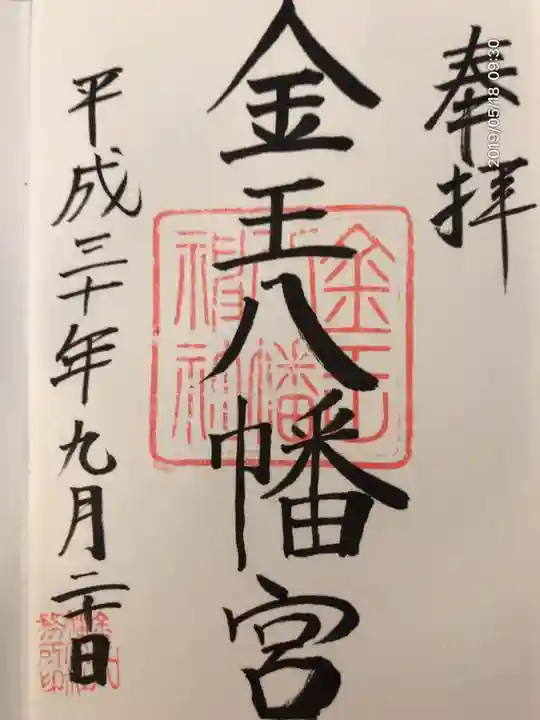 奉拝
金王八幡宮
平成三十年九月二十日
金王
八幡
神
2019/05/18 09:30